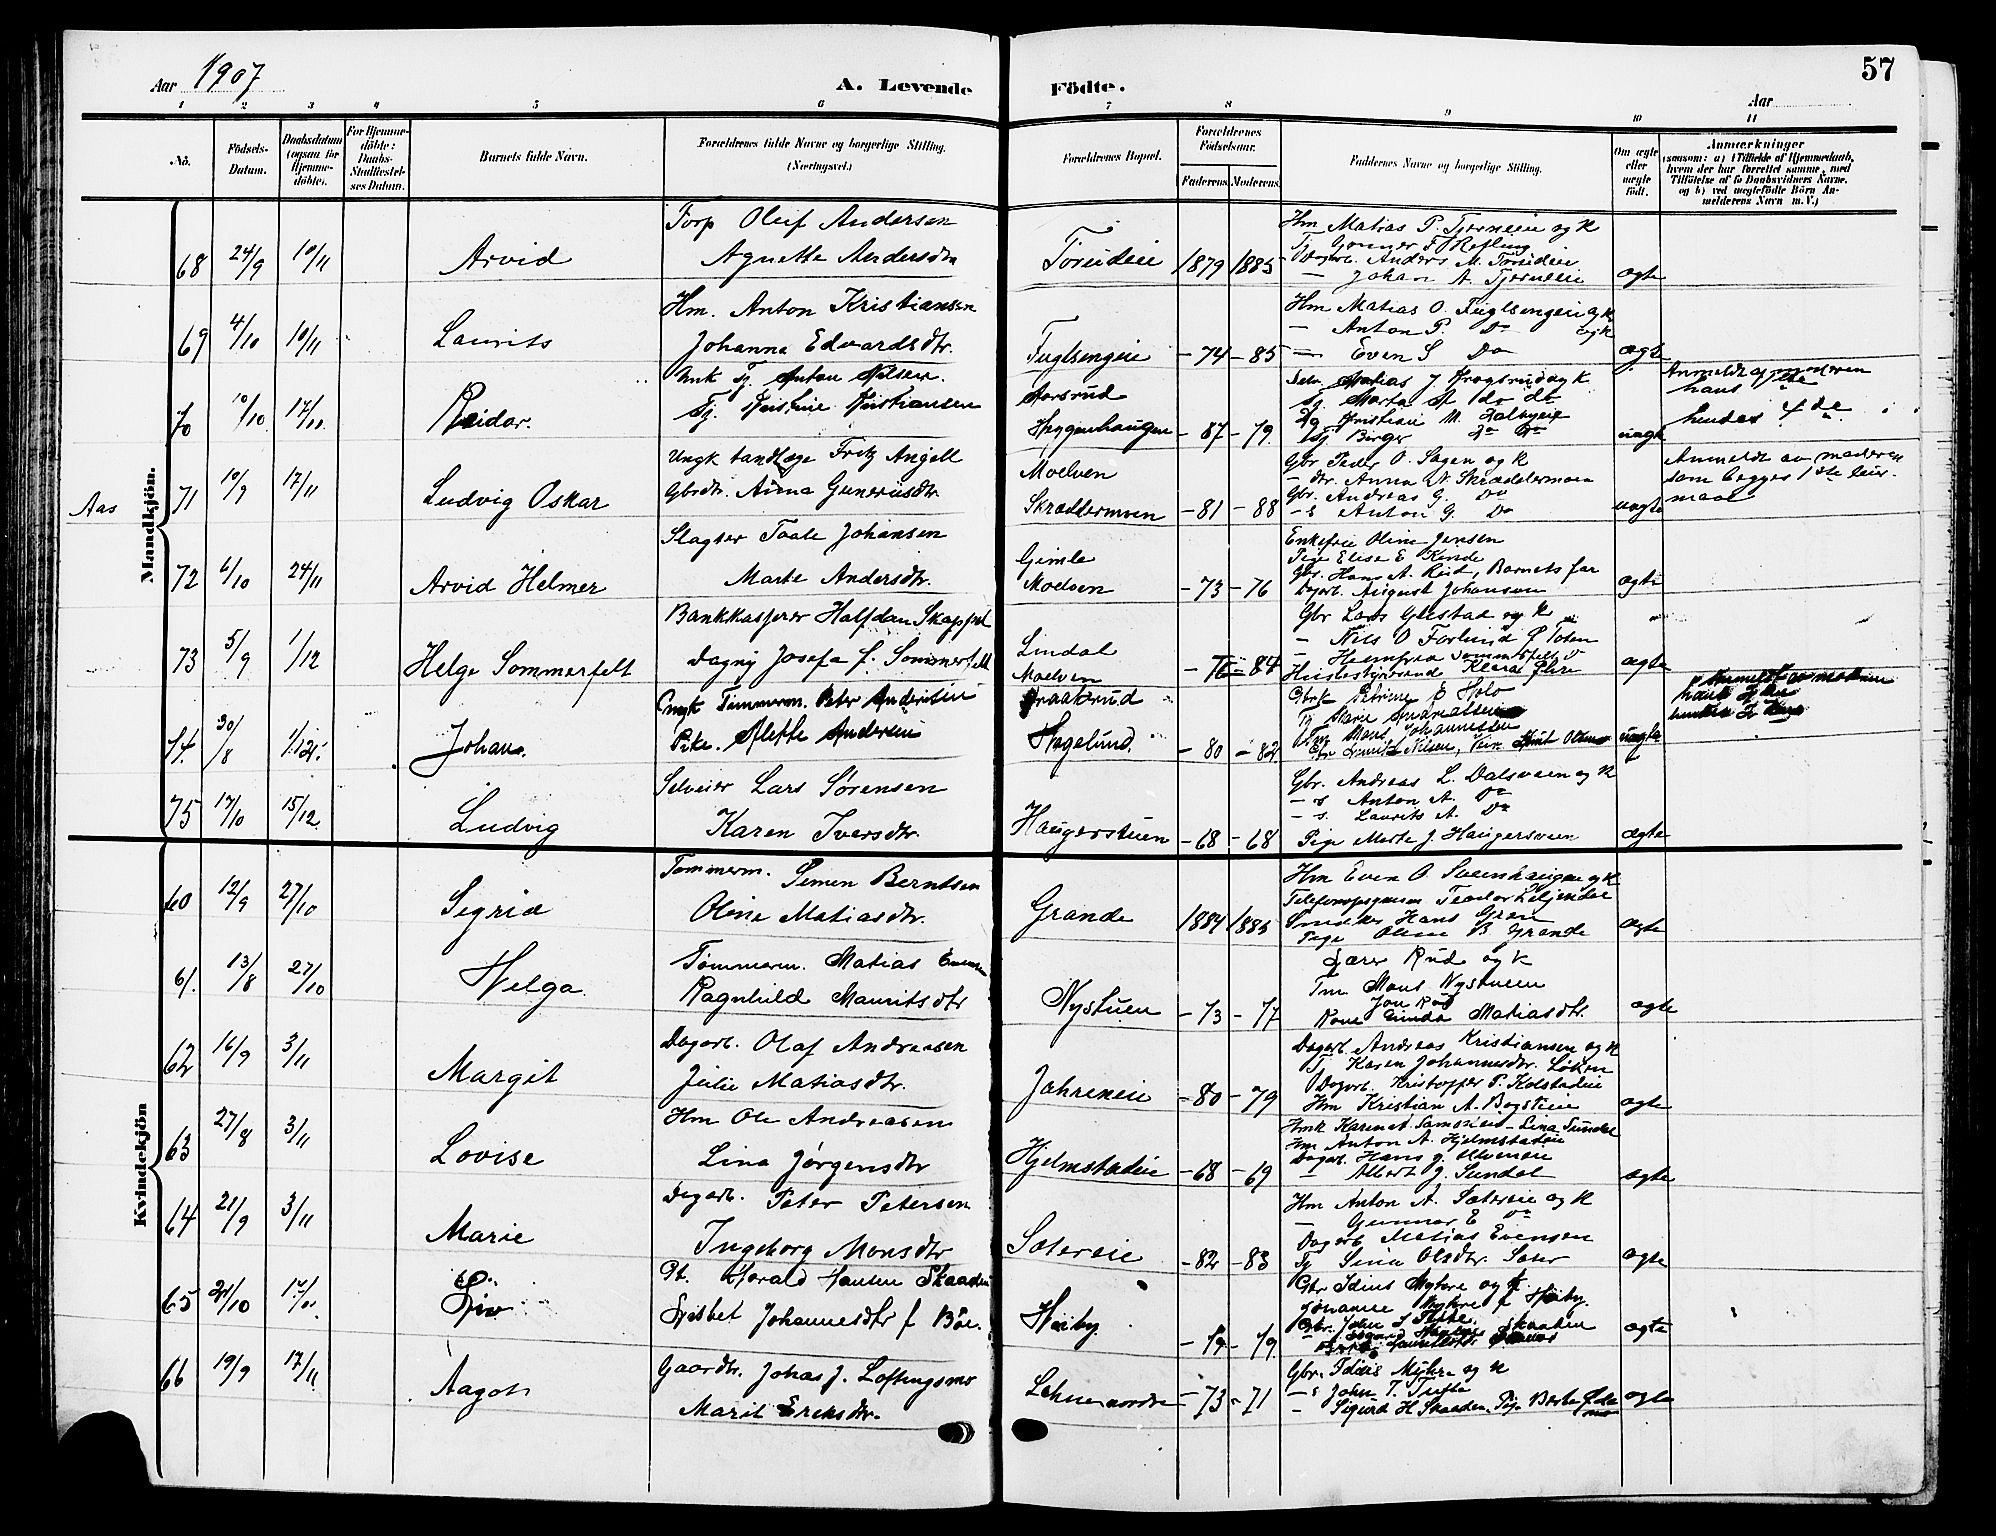 57
Aar 1907
A. Levende Födte.
Aar
1 2 3 4 5 6 7 8 9 10 11
No.
Födsels-Datum.
Daabsdatum (ogsaa for Hjemmedöbte).
For Hjemmedöbte: Daabs-Stadfæstelses Datum.
Barnets fulde Navn.
Forældrenes fulde Navne og borgerlige Stilling. (Næringsvei.)
Forældrenes Bopæl.
Forældrenes Födselsaar.
Faderens. Moderens.
Faddernes Navne og borgerlige Stilling.
Om ægte eller uægte födt.
Anmærkninger
(saasom: a) i Tilfælde af Hjemmedaab, hvem der har forrettet samme, med Tilföielse af to Daabsvidners Navne, og b) ved uægtefödte Börn Anmelderens Navn m. V.)
Mandkjön.
68 24/9 10/11 Arvid
Torp Oluf Andersen
Agnette Andersdtr
Torudeie 1879 1885
Hm Matias P. Tjerneeie og K
Tj Gunner F Refling
Dagarb. Anders M. Torudeie
— Johan A. Tjerneeie
ægte
69 4/10 10/11 Laurits
Hm. Anton Kristiansen
Johanna Edvardsdtr.
Fuglsengeie – 74 – 85
Hm Matias O. Fuglsengeie og K
— Anton P. Do og K
— Even S Do
ægte
70 10/10 17/11 Reidar.
Unk Tj. Anton Nilsen.
Tj. Kristine Kristiansen
Aarsrud
Heggenhaugen – 87 – 79.
Matias J Krogsrud og K
Tj Marta do do
Kristian M. Dalbyeie
Tj Birger Do Do
uægte
Anmeldt af moderen
hans 1ste
hendes 4de
Aas
71 10/9 17/11 Ludvig Oskar
Ungk tandlæge Fritz Angell
Gbrdtr. Anna Gunerusdtr
Moelven
Skræddermoen – 81 – 88
Gbr Peder O. Sagen og K
– dtr. Anna N. Skræddermoen
Gbr. Andreas G. Do
– s Anton G. Do
uægte
Anmeldt av moderen
som begges 1ste leiermaal
72 6/10 24/11 Arvid Helmer
Slagter Taale Johansen
Marte Andersdtr.
Gimle
Moelven – 73 – 76
Enkefrue Oline Jensen
Pige Elise E Kinde
Gbr. Hans A. Reid, Barnets far
Dagarb. August Johansen
ægte
73 5/9 1/12 Helge Sommerfelt
Bankkasserer Halfdan Skappel
Dagny Josefa f. Sommerfelt
Lindal
Moelven – 76 – 84
Gbr Lars Gjestad og K
— Nils O Forlund Ø Toten
Husbestyrerinde Klara
ægte
74. 30/8 1/12. Johan.
Ungk Tømmerm. Peter Andersen
Pike. Alette Andersen
Braaterud
Hagelund. – 80 – 82.
Holo
Tm Hans Johannessen
uægte
75 17/10 15/12 Ludvig
Selveier Lars Sørensen
Karen Iversdtr.
Haugerstuen – 68 – 68
Gbr. Andreas L. Dalsveen og K
– s Anton A. Do
– s. Laurits A. Do
Pige Marte J. Haugersveen
ægte
Kvindekjön
60 12/9 27/10 Sigrid
Tømmerm. Simen Berntsen
Oline Matiasdtr.
Grande 1884 1885
Hm Even O Sveenhaugen og K
Teodor Liljendal
Snedker Hans Gran
Pige Oline B Grande
ægte
61. 13/8 27/10 Helga.
Tømmerm. Matias Evensen
Ragnhild Mauritsdtr
Nystuen – 73 – 77
Lærer Rud og K
Tm Mons Nystueen
Jon Rud
Kone Gunda Matiasdtr.
ægte
62 16/9 3/11 Margit
Dagarb. Olaf Andreasen
Julie Matiasdtr.
Jahreneie – 80 – 79
Dagarb. Andreas Kristiansen og K
Tj Karen Johannesdtr. Løken
Dagarb. Kristoffer P. Kolstadeie
Hm Kristian A. Bogsteie
ægte
63 27/8 3/11 Lovise
Hm Ole Andreasen
Lina Jørgensdtr
Hjelmstadeie – 68 – 69
Hmk Karen A. – Lina Sundal
Hm Anton A. Hjelmstadeie
Dagarb. Hans J. Ulveneie
— Albert J. Sundal
ægte
64 21/9 3/11 Marie
Dagarb. Peter Petersen
Ingeborg Monsdtr
Sætereie – 82 – 83
Hm Anton A. Sætereie og K
— Gunnar E Do
Dagarb. Matias Evensen
Tj Sina Olsdtr. Sæter
ægte
65 21/10 17/11 Liv
Harald Hansen Skaaden
Lisbet Johannesdtr f Böe.
Høiby – 79 – 79
Gbr Idius Myhre og K
Johanne Myhre f Høiby.
Gbr. John T Tufte.
Skaaden
ægte
66 19/9 17/11 Aagot
Gaardbr. Johas J. Loftingsmo
Marit Eriksdtr.
Lehnenordre – 73 – 71
Gbr. Idius Myhre og K
– s John T. Tufte
— Sigurd H Skaaden, Pige
ægte